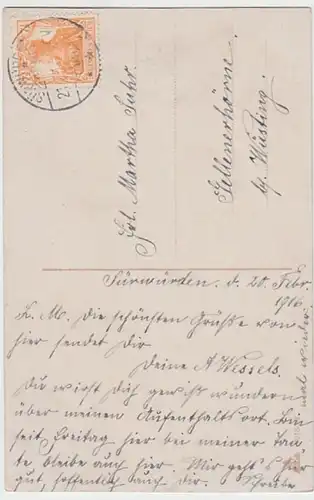 Frl. Martha Suhr.
Tellenerhörne.
by. Wüsting.
Fürwürden. d. 20. Febr.
1916.
L. M. Die schönsten Grüße von
hier sendet Dir
Deine A. Wessels.
Du wirst Dich gewiß wundern
über meinen Aufenthaltsort. Bin
seit Freitag hier bei meiner Tan-
te bleibe auch hier. Mir geht's hier
gut, hoffentlich auch dir. Schreibe
mal wieder.